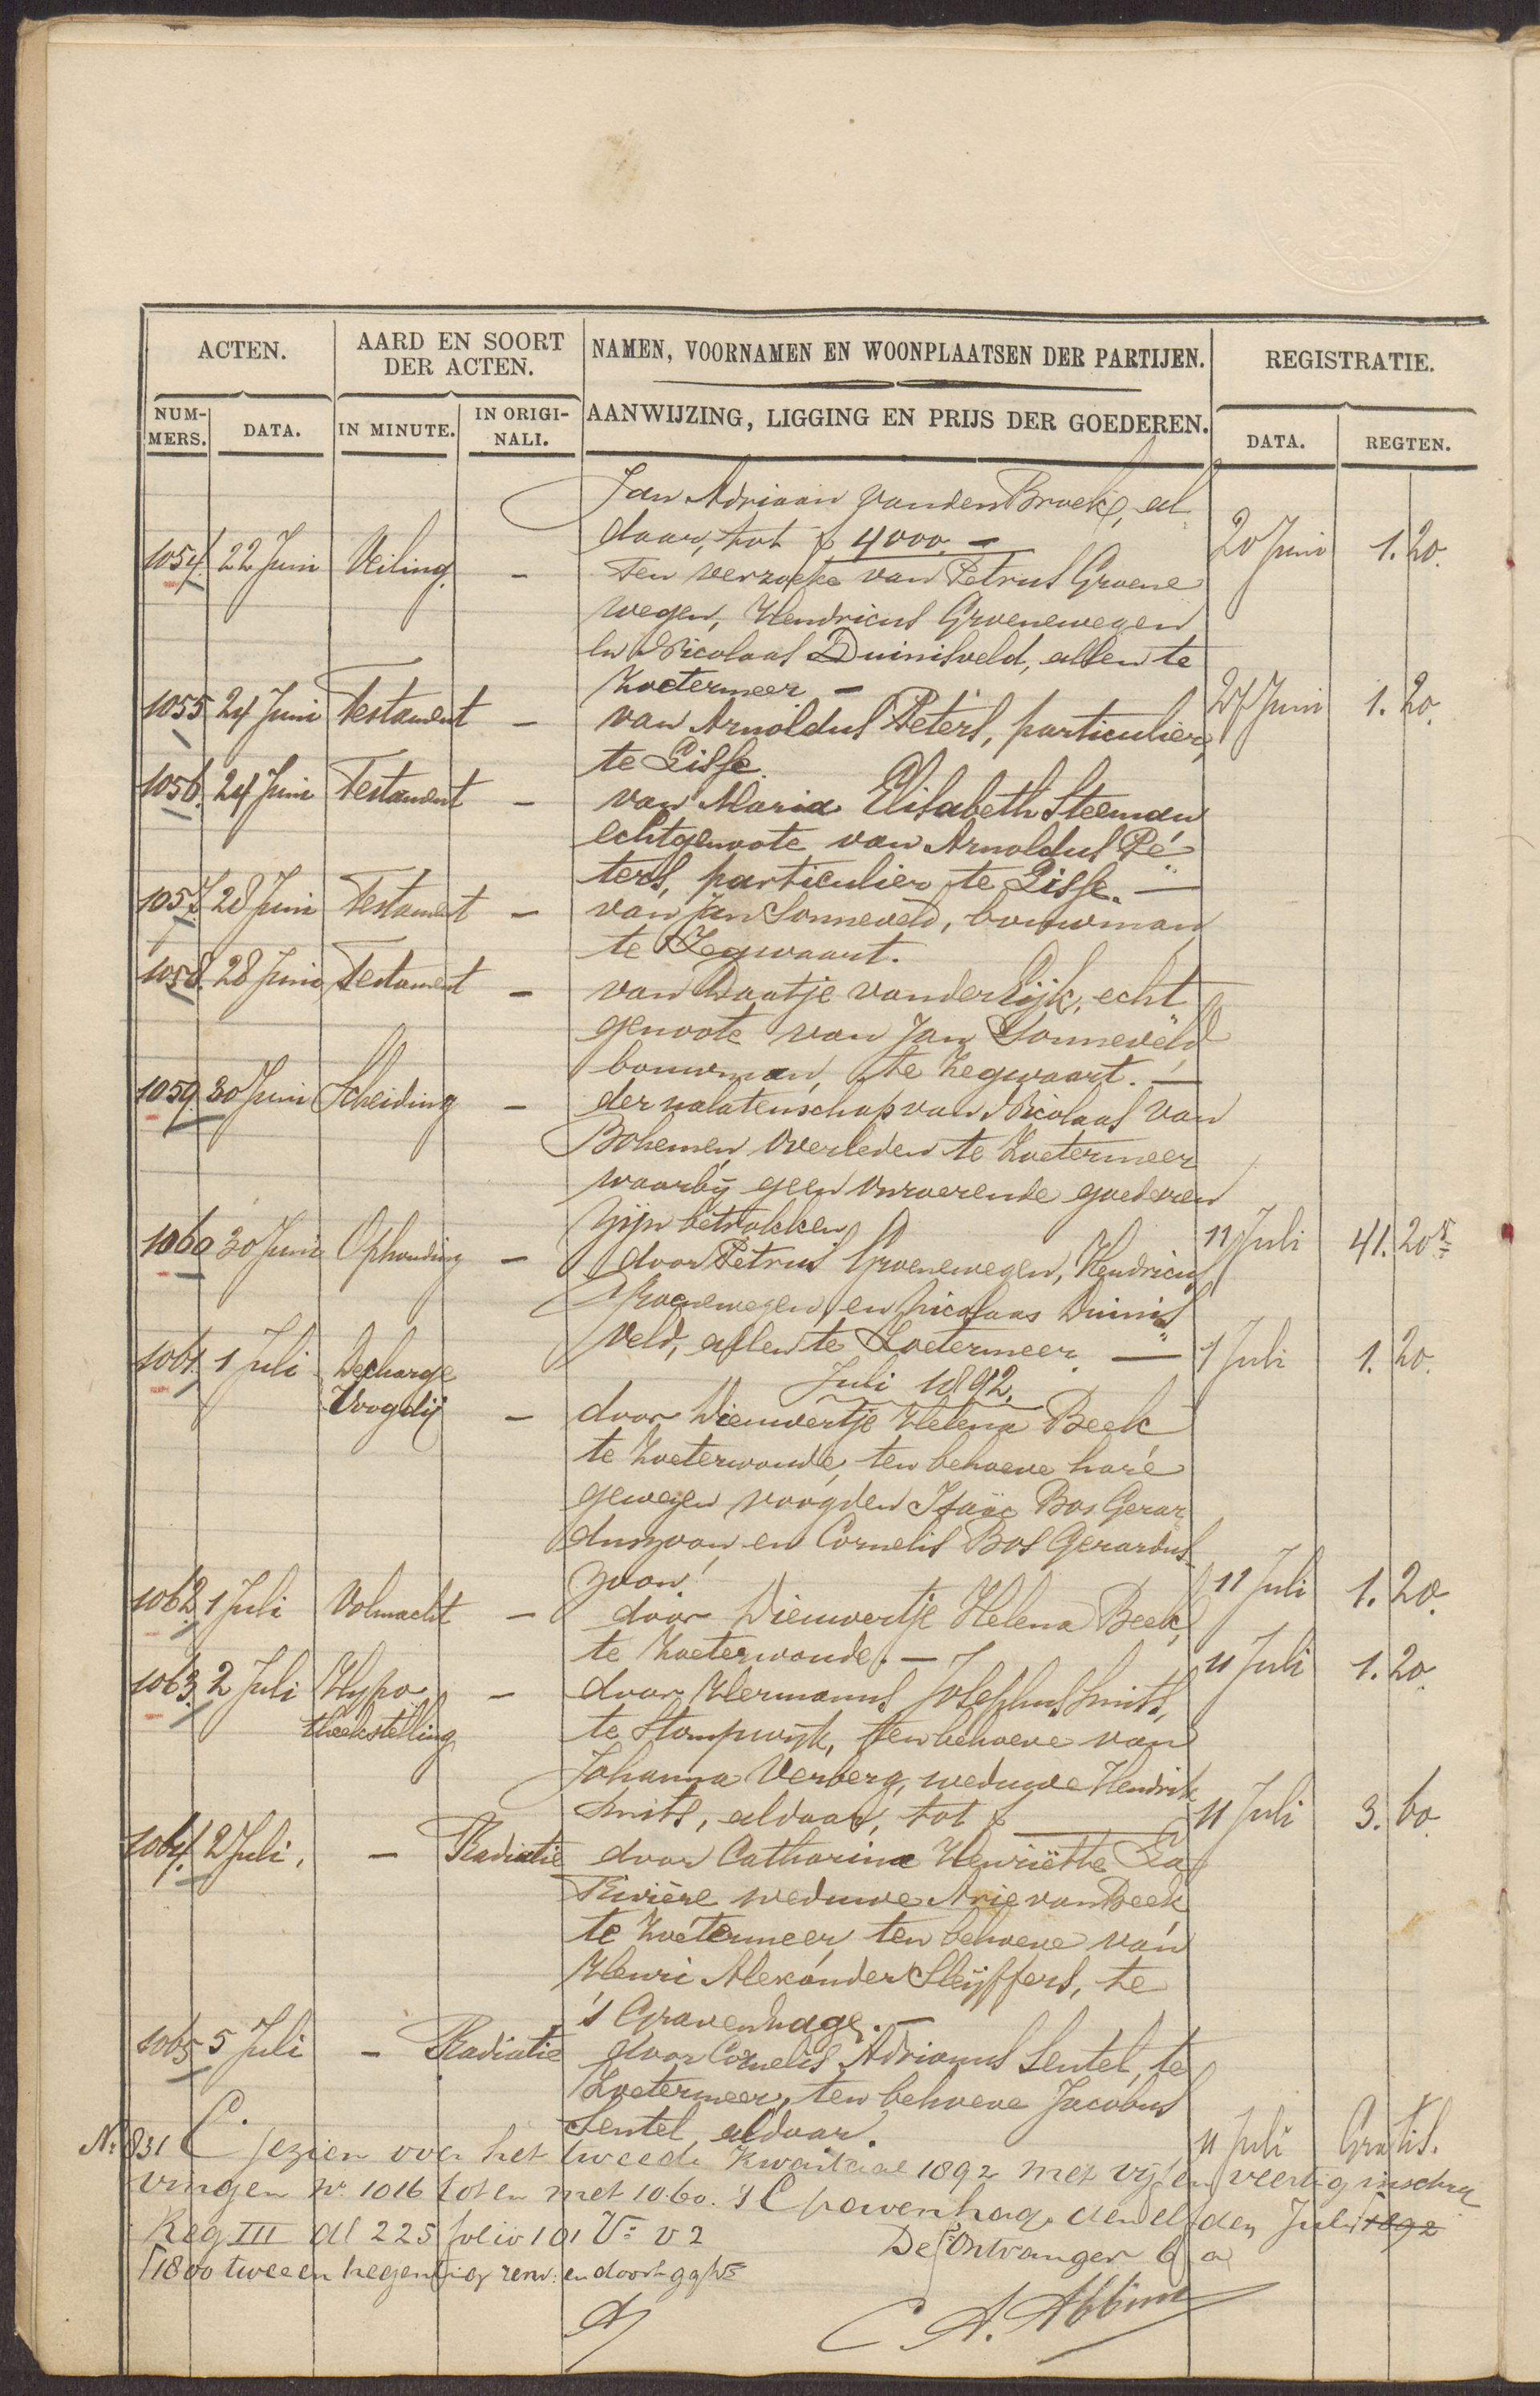 ACTEN. AARD EN SOORT DER ACTEN. NAMEN, VOORNAMEN EN WOONPLAATSEN DER PARTIJEN. REGISTRATIE.
NUMMERS. DATA. IN MINUTE. IN ORIGINALI. AANWIJZING, LIGGING EN PRIJS DER GOEDEREN. DATA. REGTEN.
Jan Adriaan van den Broek, al
daar, tot f 4000.— 20 Juni 1.20.
1054. 22 Juni Veiling. — ten verzoeke van Petrus Groene
wegen, Hendricus Groenewegen
en Nicolaas Duinisveld, allen te
Zoetermeer — 27 Juni 1.20.
1055 24 Juni Testament — van Arnoldus Peters, particulier,
te Lisse.
1056. 24 Juni Testament — van Maria Elisabeth Steeman
echtgenoote van Arnoldus Pe
ters, particulier te Lisse. —
1057. 28 Juni Testament — van Jan Sonneveld, bouwman
te Zegwaart.
1058. 28 Juni Testament — van Daatje van der Lijk, echt
genoote van Jan Sonneveld
bouwman, te Zegwaart. —
1059. 30 Juni Scheiding — der nalatenschap van Nicolaas van
Bohemen, overleden te Zoetermeer
waarbij geen onroerende goederen
zijn betrokken. 11 Juli 41.20
1060 30 Juni Ophouding — door Petrus Groenewegen, Hendricus
Groenewegen en Nicolaas Duinis
veld, allen te Zoetermeer. — 1 Juli 1.20.
Juli 1892.
1061. 1 Juli Decharge
Voogdij — door Diewertje Helena Beek
te Zoeterwoude, ten behoeve hare
gewezen voogden Isaäc Bos Gerar
duszoon en Cornelis Bos Gerardus
zoon. 11 Juli 1.20.
1062. 1 Juli Volmacht — door Diewertje Helena Beek,
te Zoeterwoude. — 11 Juli 1.20.
1063. 2 Juli Hypo — door Hermanus Josephus Smits,
theekstelling te Stompwijk, ten behoeve van
Johanna Verberg, weduwe Hendrik
Smits, aldaar, tot f — 11 Juli 3.60.
1064. 2 Juli. — Radiatie door Catharina Henriëtte La
Rivière weduwe Arie van Beek
te Zoetermeer ten behoeve van
Henri Alexander Sleijffers, te
's Gravenhage. —
1065 5 Juli — Radiatie door Cornelis Adrianus Sentel, te
Zoetermeer, ten behoeve Jacobus
Sentel aldaar. 11 Juli Gratis.
No 831 Gezien over het tweede Kwartaal 1892 met vijf en veertig inschrij
vingen no 1016 tot en met 1060. 's Gravenhage den elfden Juli 1892
Reg III dl 225 folio 101 Vo v 2 De Ontvanger
1800 twee en negentig renv: en doorh gg
A. Abbinn